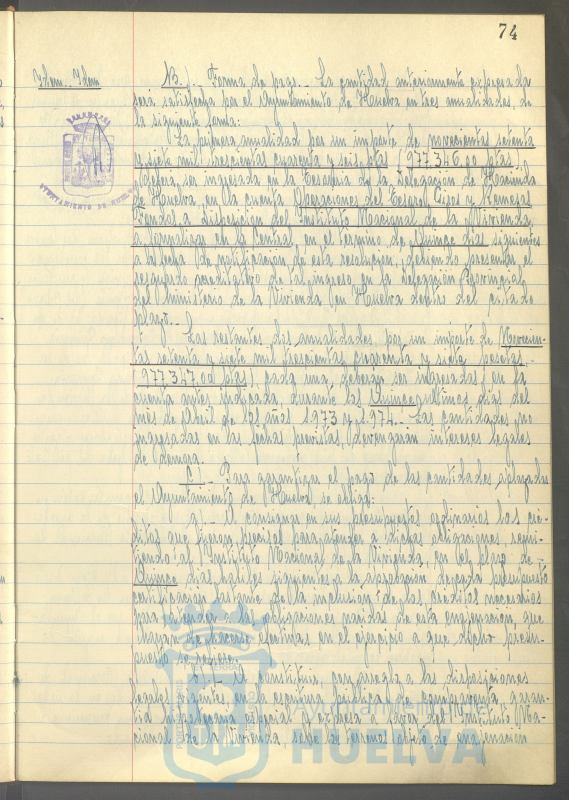 74
Idem. Idem
B).- Forma de pago.- La cantidad anteriormente expresada
será satisfecha por el Ayuntamiento de Huelva en tres anualidades, de
la siguiente forma:
La primera anualidad por un importe de novecientas setenta
y siete mil trescientas cuarenta y seis ptas (977.346,00 ptas)
deberá ser ingresada en la Tesorería de la Delegación de Hacienda
de Huelva, en la cuenta Operaciones del Tesoro, Giros y Remesas
a disposición del Instituto Nacional de la Vivienda,
a formalizar en la Central, en el término de Quince días siguientes
a la fecha de notificación de esta resolución, debiendo presentar el
resguardo acreditativo de tal ingreso en la Delegación Provincial
del Ministerio de la Vivienda en Huelva dentro del citado
plazo.-
Las restantes dos anualidades, por un importe de Novecien-
tas setenta y siete mil trescientas cuarenta y siete pesetas
(977.347,00 ptas) cada una, deberán ser ingresadas en la
cuenta antes indicada, durante los Quince últimos días del
mes de Abril de los años 1.973 y 1.974.- Las cantidades no
ingresadas en las fechas previstas, devengarán intereses legales
de demora.
C).- Para garantizar el pago de las cantidades aplazadas
el Ayuntamiento de Huelva se obliga:
a).- A consignar en sus presupuestos ordinarios los cré-
ditos que fueren precisos para atender a dichas obligaciones, remi-
tiendo al Instituto Nacional de la Vivienda, en el plazo de
Quince días hábiles siguientes a la aprobación de cada presupuesto
certificación de la inclusión de los créditos necesarios
para atender las obligaciones nacidas de esta enajenación, que
hayan de hacerse efectivas en el ejercicio a que dicho presu-
puesto se refiere.
b).- A constituir, con arreglo a las disposiciones
legales vigentes, en la escritura pública de compraventa, garan-
tía hipotecaria especial y expresa a favor del Instituto Na-
cional de la Vivienda, sobre el terreno objeto de enajenación
AYUNTAMIENTO DE HUELVA
HUELVA